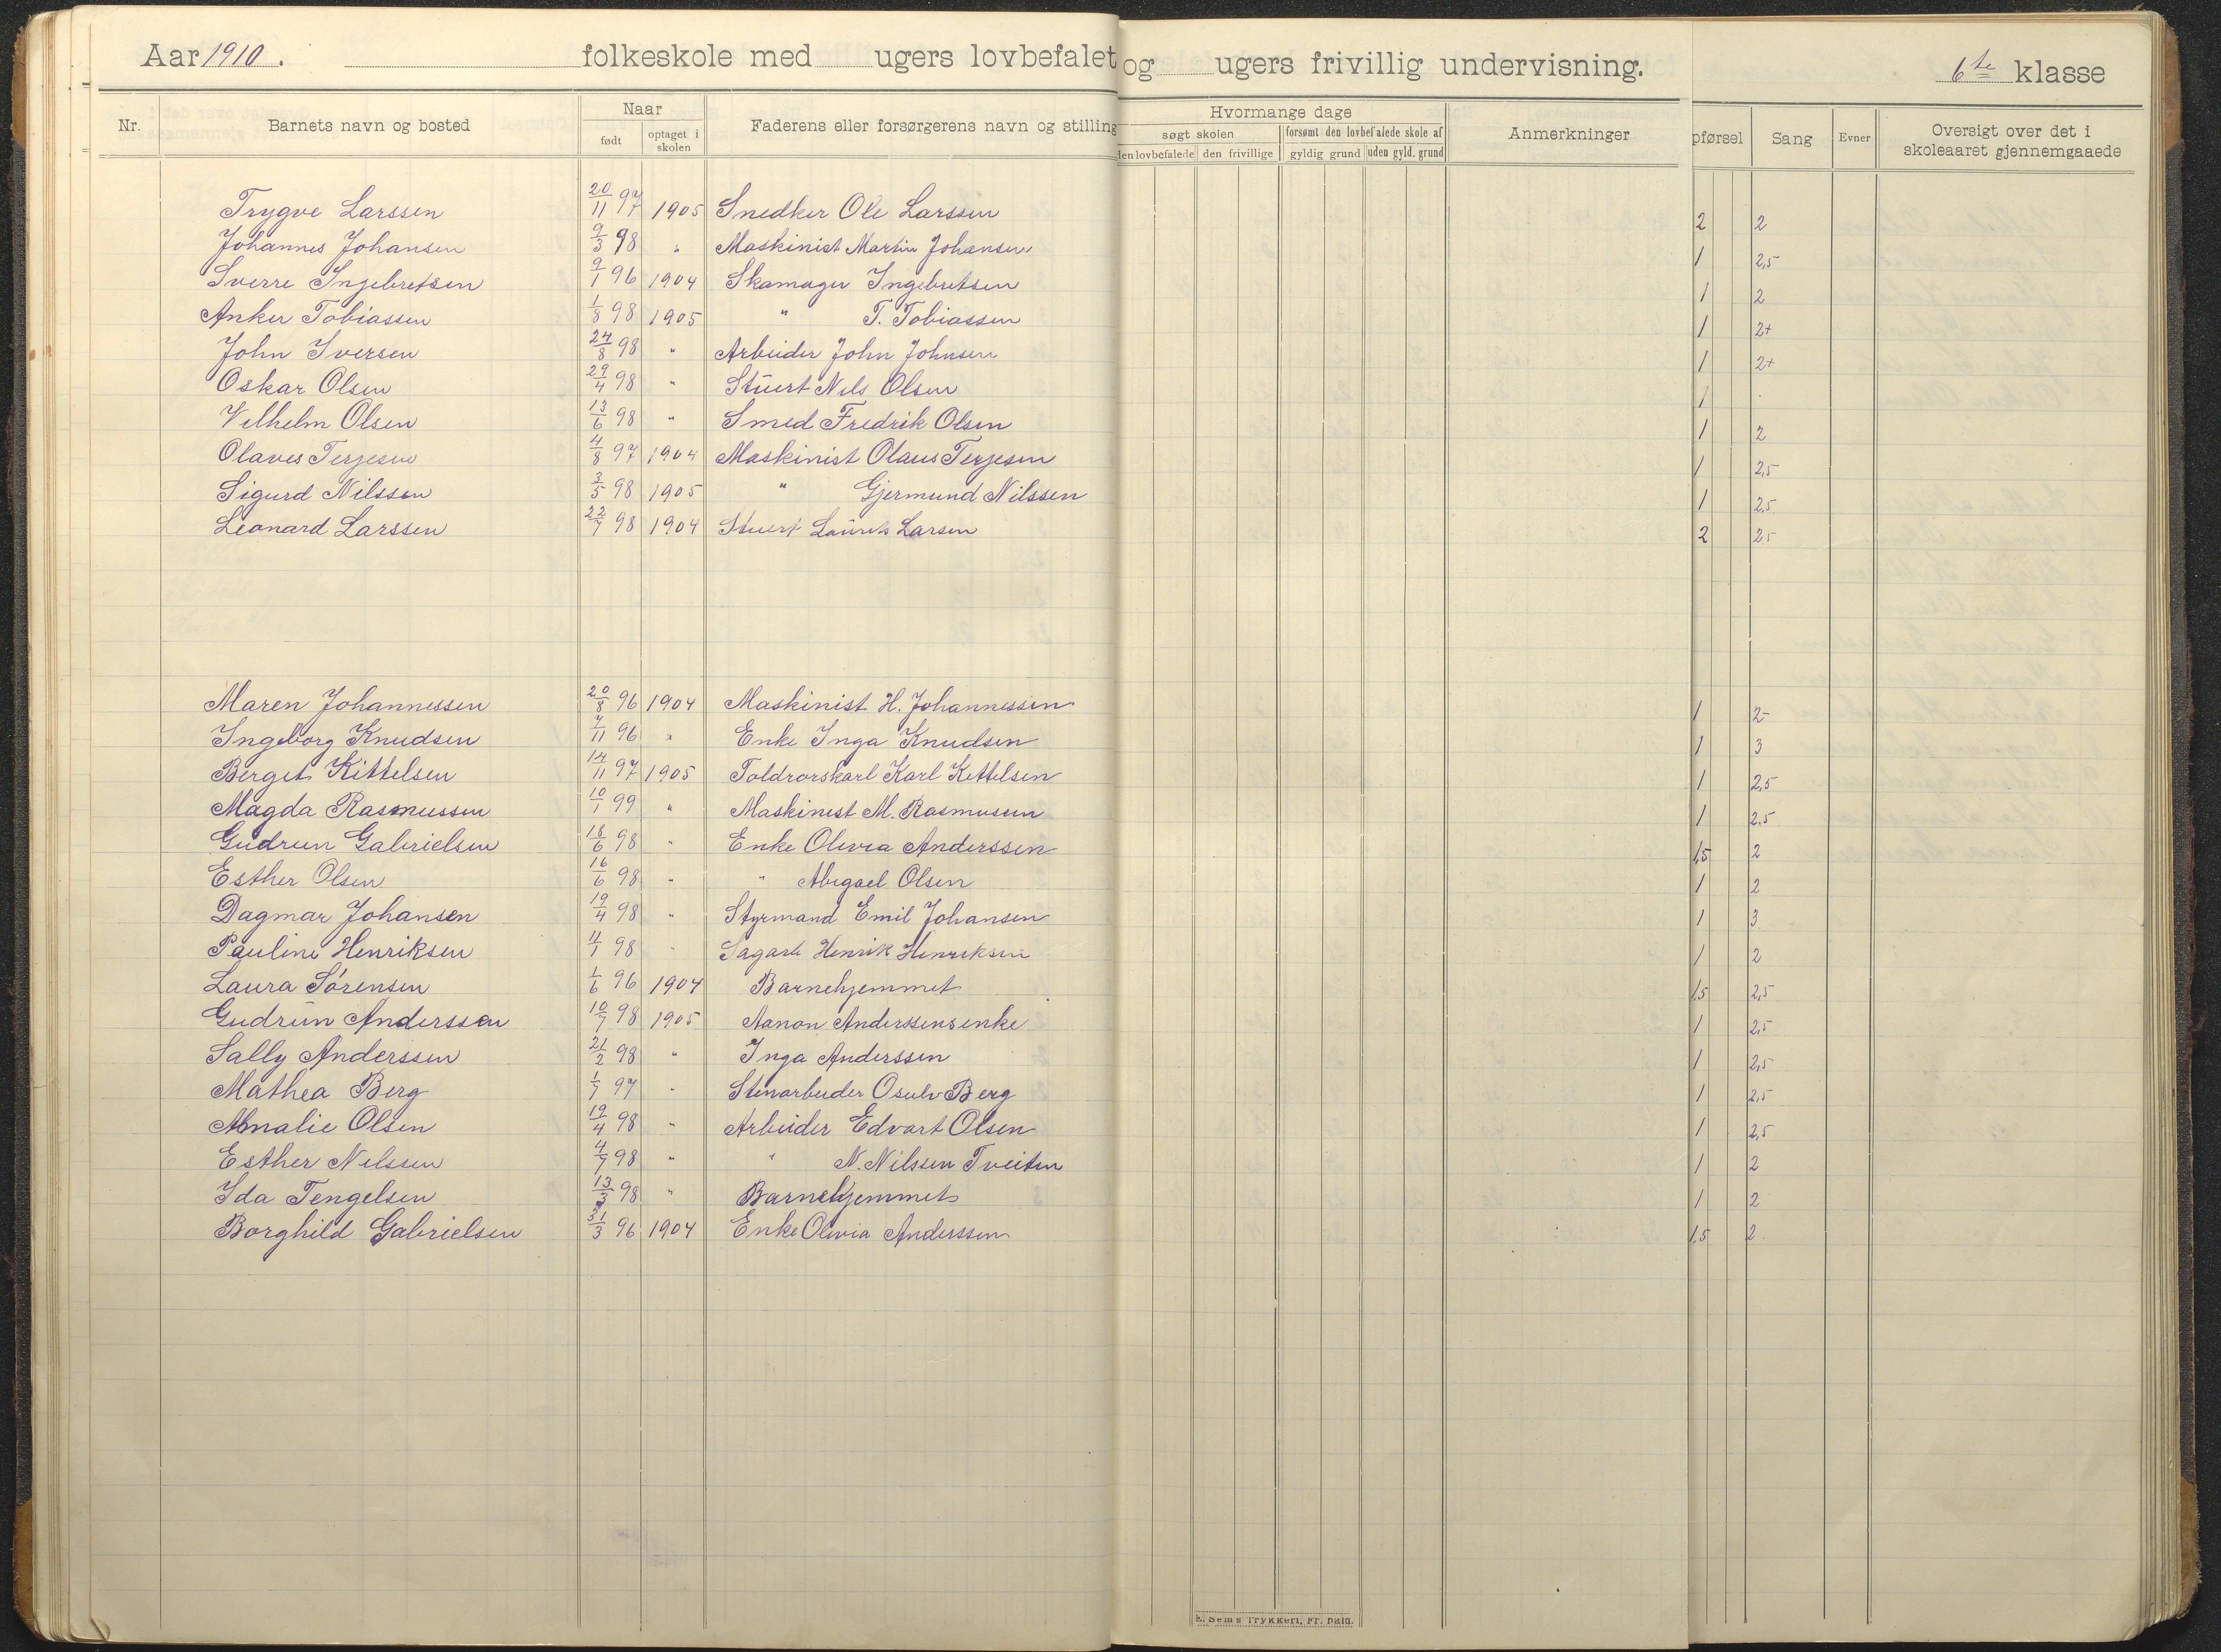 Aar 1910. folkeskole med ugers lovbefalet og ugers frivillig undervisning. 6te klasse
Nr. Barnets navn og bosted Naar født optaget i skolen Faderens eller forsørgerens navn og stilling Hvormange dage søgt skolen den lovbefalede den frivillige forsømt den lovbefalede skole af gyldig grund uden gyld. grund Anmerkninger pførsel Sang Evner Oversigt over det i skoleaaret gjennemgaaede
Trygve Larssen 20/11 97 1905 Snedker Ole Larssen 2 2
Johannes Johansen 9/3 98 " Maskinist Martin Johansen 1 2,5
Sverre Ingebretsen 9/1 96 1904 Skomager Ingebretsen 1 2
Anker Tobiassen 1/8 98 1905 " T. Tobiassen 1 2+
John Iversen 24/8 98 " Arbeider John Johnsen 1 2+
Oskar Olsen 29/4 98 " Stuert Nils Olsen 1
Vilhelm Olsen 13/6 98 " Smed Fredrik Olsen 1 2
Olaves Terjesen 4/8 97 1904 Maskinist Olaus Terjesen 1 2,5
Sigurd Nilssen 3/5 98 1905 " Gjermund Nilssen 1 2,5
Leonard Larssen 22/7 98 1904 Stuert Laurits Larsen 2 25
Maren Johannessen 20/8 96 1904 Maskinist H. Johannessen 1 2-
Ingeborg Knudsen 7/11 96 " Enke Inga Knudsen 1 3
Berget Kittelsen 14/11 97 1905 Toldrorskarl Karl Kettelsen 1 2,5
Magda Rasmussen 10/1 99 " Maskinist M. Rasmusen 1 2,5
Gudrun Gabrielsen 18/6 98 " Enke Olivia Anderssen 1,5 2
Esther Olsen 16/6 98 " " Abigael Olsen 1 2
Dagmar Johansen 19/4 98 " Styrmand Emil Johansen 1 3
Pauline Henriksen 11/1 98 " Sagarb Henrik Henriksen 1 2
Laura Sørensen 1/6 96 1904 Barnehjemmet 1,5 2,5
Gudrun Anderssen 10/7 98 1905 Aanon Anderssens enke 1 2,5
Sally Anderssen 21/2 98 " Inga Anderssen 1 2,5
Mathea Berg 1/7 97 " Stenarbeider Osulv Berg 1 2,5
Amalie Olsen 19/4 98 " Arbeider Edvart Olsen 1 2,5
Esther Nelssen 4/7 98 " " N. Nilssen Tveiten 1 2
Ida Tengelsen 13/3 98 " Barnehjemmet 1 2
Borghild Gabrielsen 31/3 96 1904 Enke Olivia Anderssen 1,5 2
E. Sem's Trykkeri, Fr. hald.